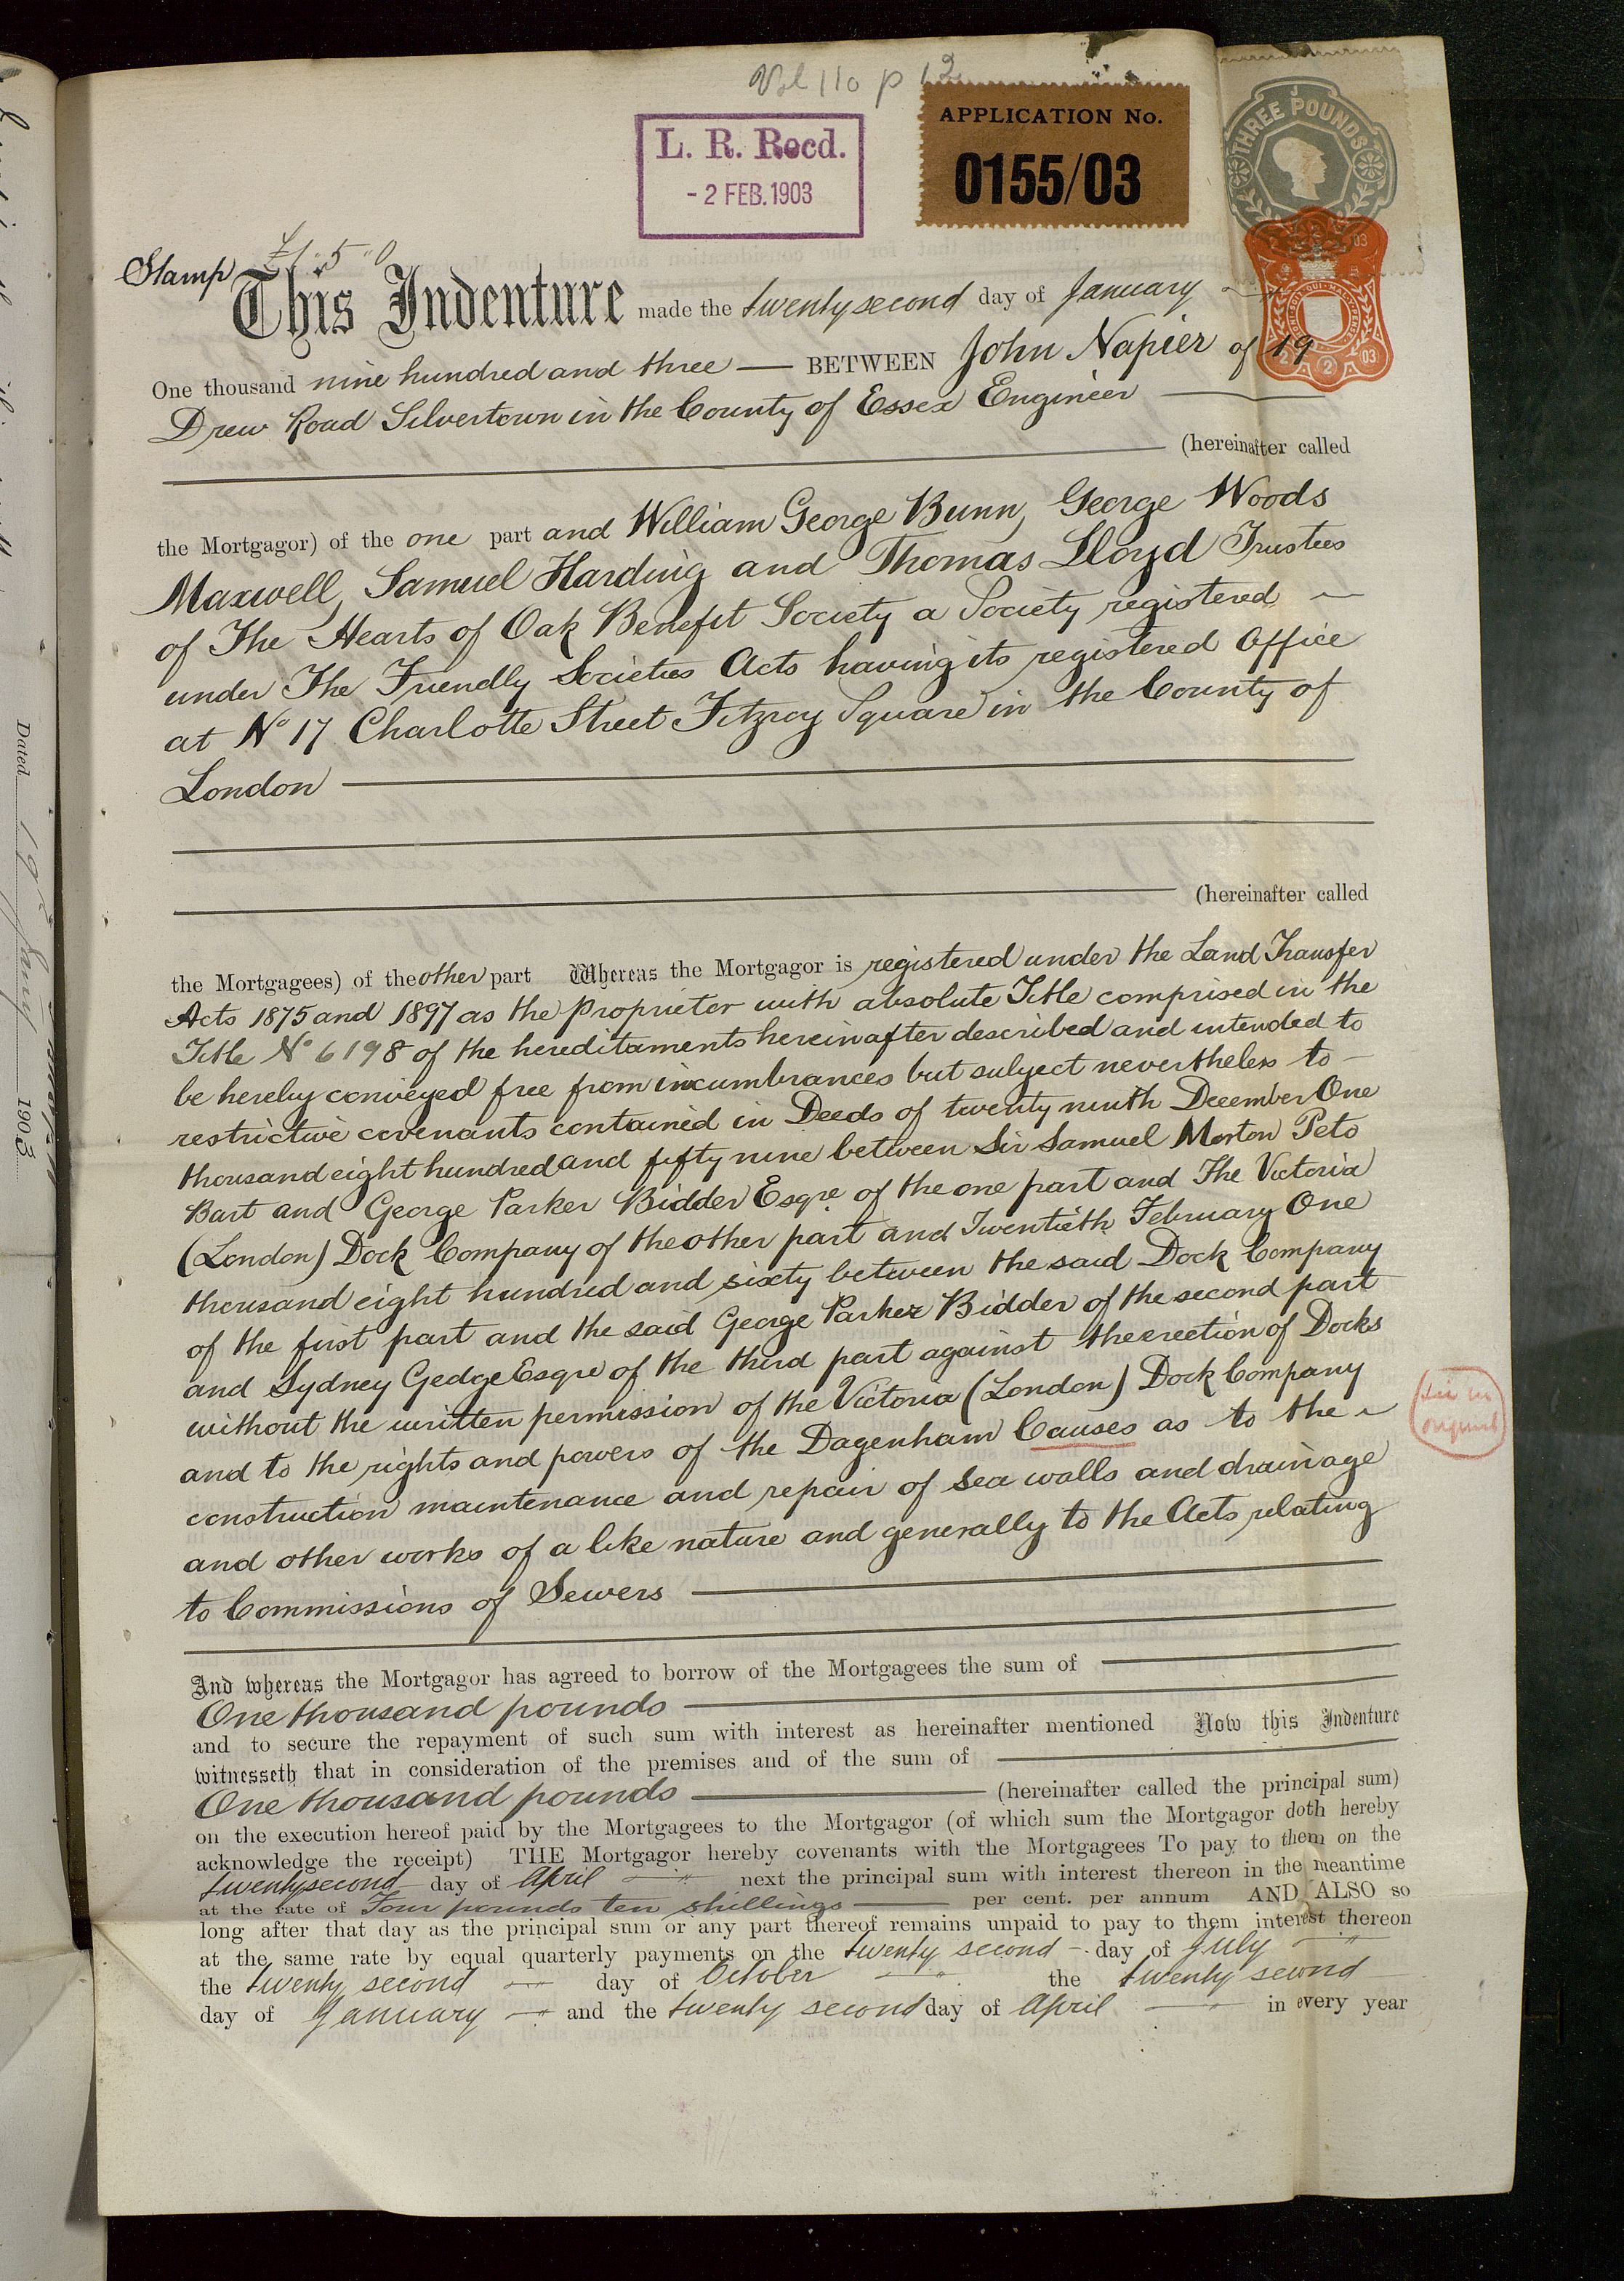 Vol 110 p 13
L. R. Recd.
- 2 FEB. 1903
APPLICATION No.
0155/03
THREE POUNDS
Stamp £1 " 5 " 0
This Indenture made the twenty second day of January
One thousand nine hundred and three — BETWEEN John Napier of 19
Drew Road Silvertown in the County of Essex Engineer
(hereinafter called
the Mortgagor) of the one part and William George Bunn, George Woods
Maxwell, Samuel Harding and Thomas Lloyd Trustees
of The Hearts of Oak Benefit Society a Society registered
under The Friendly Societies Acts having its registered Office
at No 17 Charlotte Street Fitzroy Square in the County of
London
(hereinafter called
the Mortgagees) of the other part Whereas the Mortgagor is registered under the Land Transfer
Acts 1875 and 1897 as the Proprietor with absolute Title comprised in the
Title No 6198 of the hereditaments hereinafter described and intended to
be hereby conveyed free from incumbrances but subject nevertheless to
restrictive covenants contained in Deeds of twenty ninth December One
thousand eight hundred and fifty nine between Sir Samuel Morton Peto
Bart and George Parker Bidder Esqre of the one part and The Victoria
(London) Dock Company of the other part and Twentieth February One
thousand eight hundred and sixty between the said Dock Company
of the first part and the said George Parker Bidder of the second part
and Sydney Gedge Esqre of the third part against the erection of Docks
without the written permission of the Victoria (London) Dock Company
and to the rights and powers of the Dagenham Causes as to the
sic in
original
construction maintenance and repair of sea walls and drainage
and other works of a like nature and generally to the Acts relating
to Commissions of Sewers
And whereas the Mortgagor has agreed to borrow of the Mortgagees the sum of
One thousand pounds
and to secure the repayment of such sum with interest as hereinafter mentioned Now this Indenture
witnesseth that in consideration of the premises and of the sum of
One thousand pounds (hereinafter called the principal sum)
on the execution hereof paid by the Mortgagees to the Mortgagor (of which sum the Mortgagor doth hereby
acknowledge the receipt) THE Mortgagor hereby covenants with the Mortgagees To pay to them on the
twenty second day of April next the principal sum with interest thereon in the meantime
at the rate of Four pounds ten shillings per cent. per annum AND ALSO so
long after that day as the principal sum or any part thereof remains unpaid to pay to them interest thereon
at the same rate by equal quarterly payments on the twenty second day of July
the twenty second day of October the twenty second
day of January and the twenty second day of April in every year
Dated 19th Jany 1903